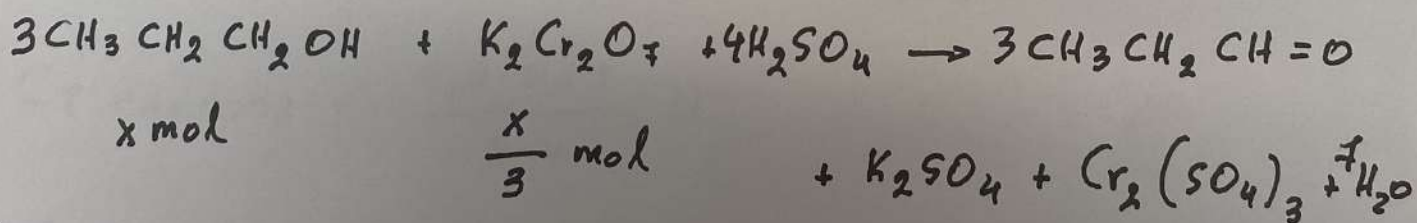 3CH₃CH₂CH₂OH + K₂Cr₂O₇ +4H₂SO₄ → 3CH₃CH₂CH=O
x mol x/3 mol + K₂SO₄ + Cr₂(SO₄)₃ + 7H₂O